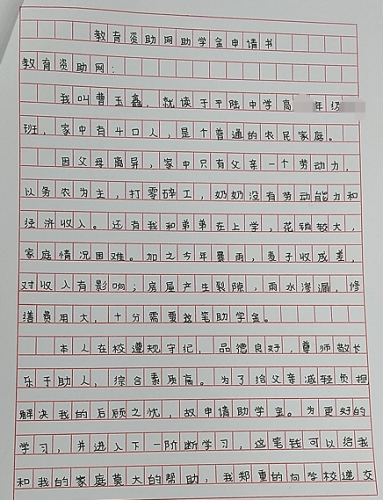 教育资助网助学金申请书
教育资助网:
我叫曹玉鑫,就读于平陆中学高 年级
班,家中有4口人,是个普通的农民家庭。
因父母离异,家中只有父亲一个劳动力,
以务农为主,打零碎工,奶奶没有劳动能力和
经济收入。还有我和弟弟在上学,花销较大,
家庭情况困难。加之今年暴雨,麦子收成差,
对收入有影响;房屋产生裂隙,雨水渗漏,修
缮费用大,十分需要这笔助学金。
本人在校遵规守记,品德良好,尊师敬长
乐于助人,综合素质高。为了给父亲减轻负担
解决我的后顾之忧,故申请助学金。为更好的
学习,并进入下一阶断学习,这笔钱可以给我
和我的家庭莫大的帮助,我郑重的向学校递交